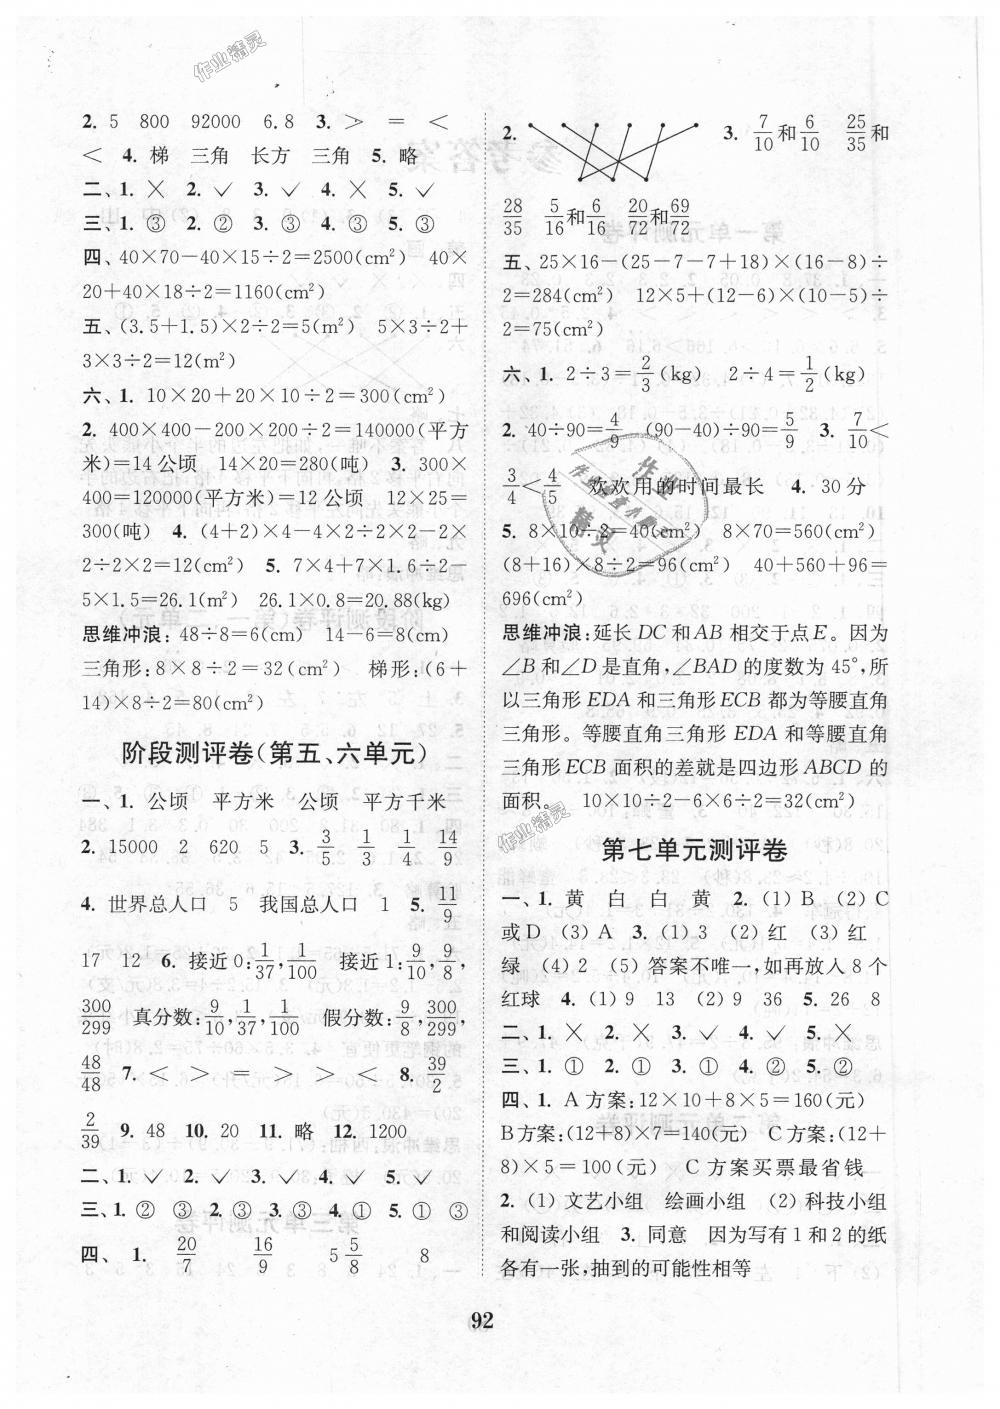 2. 5 800 92000 6.8 3. > = <
< 4. 梯 三角 长方 三角 5. 略
二、1. × 2. ✓ 3. ✓ 4. × 5. ✓
三、1. ③ 2. ② 3. ③ 4. ③ 5. ③
四、40×70-40×15÷2=2500(cm²) 40×
20+40×18÷2=1160(cm²)
五、(3.5+1.5)×2÷2=5(m²) 5×3÷2+
3×3÷2=12(m²)
六、1. 10×20+20×10÷2=300(cm²)
2. 400×400-200×200÷2=140000(平方
米)=14公顷 14×20=280(吨) 3. 300×
400=120000(平方米)=12公顷 12×25=
300(吨) 4. (4+2)×4-4×2÷2×2-2×
2÷2×2=12(m²) 5. 7×4+7×1.6÷2-
5×1.5=26.1(m²) 26.1×0.8=20.88(kg)
思维冲浪:48÷8=6(cm) 14-6=8(cm)
三角形:8×8÷2=32(cm²) 梯形:(6+
14)×8÷2=80(cm²)
阶段测评卷(第五、六单元)
一、1. 公顷 平方米 公顷 平方千米
2. 15000 2 620 5 3. 3/5 1/3 1/4 14/9
4. 世界总人口 5 我国总人口 1 5. 11/9
17 12 6. 接近0:1/37,1/100 接近1:9/10,9/8,
300/299 真分数:9/10,1/37,1/100 假分数:9/8,300/299,
48/48 7. < > = > > < 8. 39/2
2/39 9. 48 10. 20 11. 略 12. 1200
二、1. ✓ 2. ✓ 3. ✓ 4. ✓ 5. ✓
三、1. ② ③ 2. ③ 3. ③ 4. ① 5. ① ③
四、1. 20/7 16/9 5 5/8 8
2. 3. 7/10和6/10 25/35和
28/35 5/16和6/16 20/72和69/72
五、25×16-(25-7-7+18)×(16-8)÷
2=284(cm²) 12×5+(12-6)×(10-5)÷
2=75(cm²)
六、1. 2÷3=2/3(kg) 2÷4=1/2(kg)
2. 40÷90=4/9 (90-40)÷90=5/9 3. 7/10<
3/4<4/5 欢欢用的时间最长 4. 30分
5. 8×10÷2=40(cm²) 8×70=560(cm²)
(8+16)×8÷2=96(cm²) 40+560+96=
696(cm²)
思维冲浪:延长DC和AB相交于点E。因为
∠B和∠D是直角,∠BAD的度数为45°,所
以三角形EDA和三角形ECB都为等腰直角
三角形。等腰直角三角形EDA和等腰直角
三角形ECB面积的差就是四边形ABCD的
面积。 10×10÷2-6×6÷2=32(cm²)
第七单元测评卷
一、1. 黄 白 白 黄 2. (1) B (2) C
或D (3) A 3. (1) 3 (2) 红 (3) 红
绿 (4) 2 (5) 答案不唯一,如再放入8个
红球 4. (1) 9 13 (2) 9 36 5. 26 8
二、1. × 2. × 3. ✓ 4. ✓ 5. ×
三、1. ① 2. ① 3. ① 4. ② 5. ②
四、1. A方案:12×10+8×5=160(元)
B方案:(12+8)×7=140(元) C方案:(12+
8)×5=100(元) C方案买票最省钱
2. (1) 文艺小组 绘画小组 (2) 科技小组
和阅读小组 3. 同意 因为写有1和2的纸
各有一张,抽到的可能性相等
92
作业精灵
作业精灵